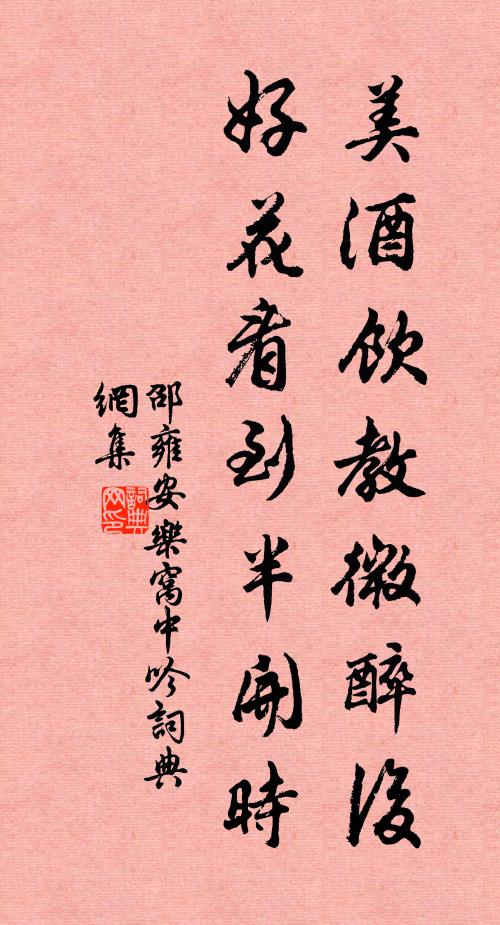 美酒飲教微醉後
好花看到半開時
邵雍安樂窩中吟詞典
網集
詞典
网印